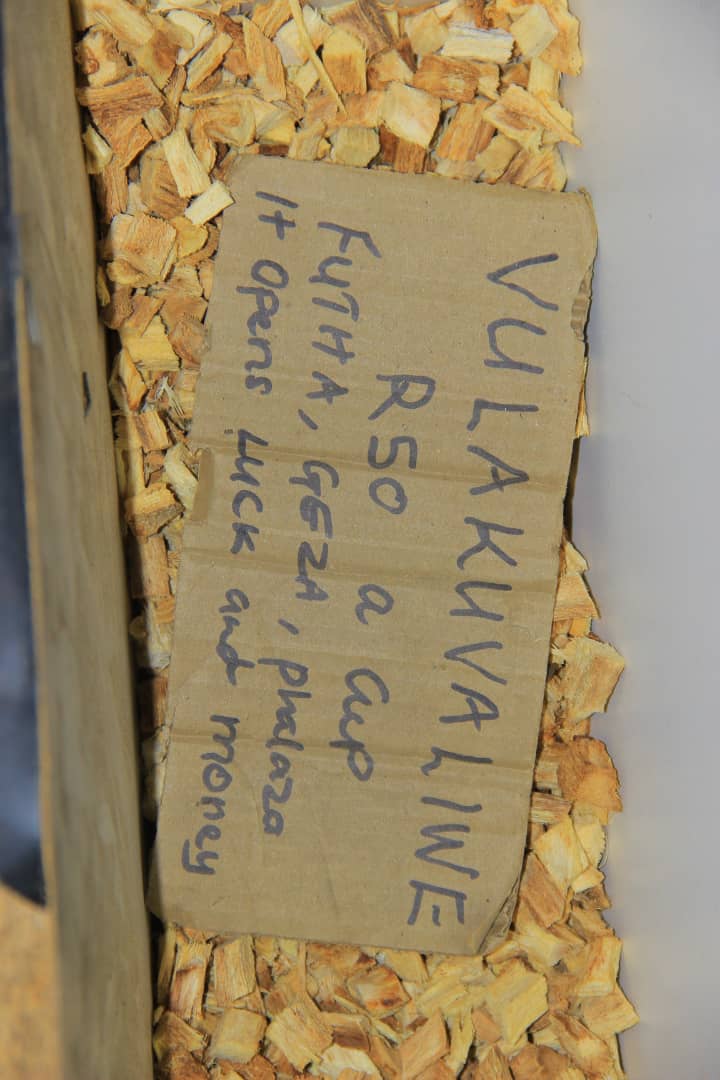 VULAKUVALIWE
R50 a cup
FUTHA, GEZA, phalaza
It opens luck and money